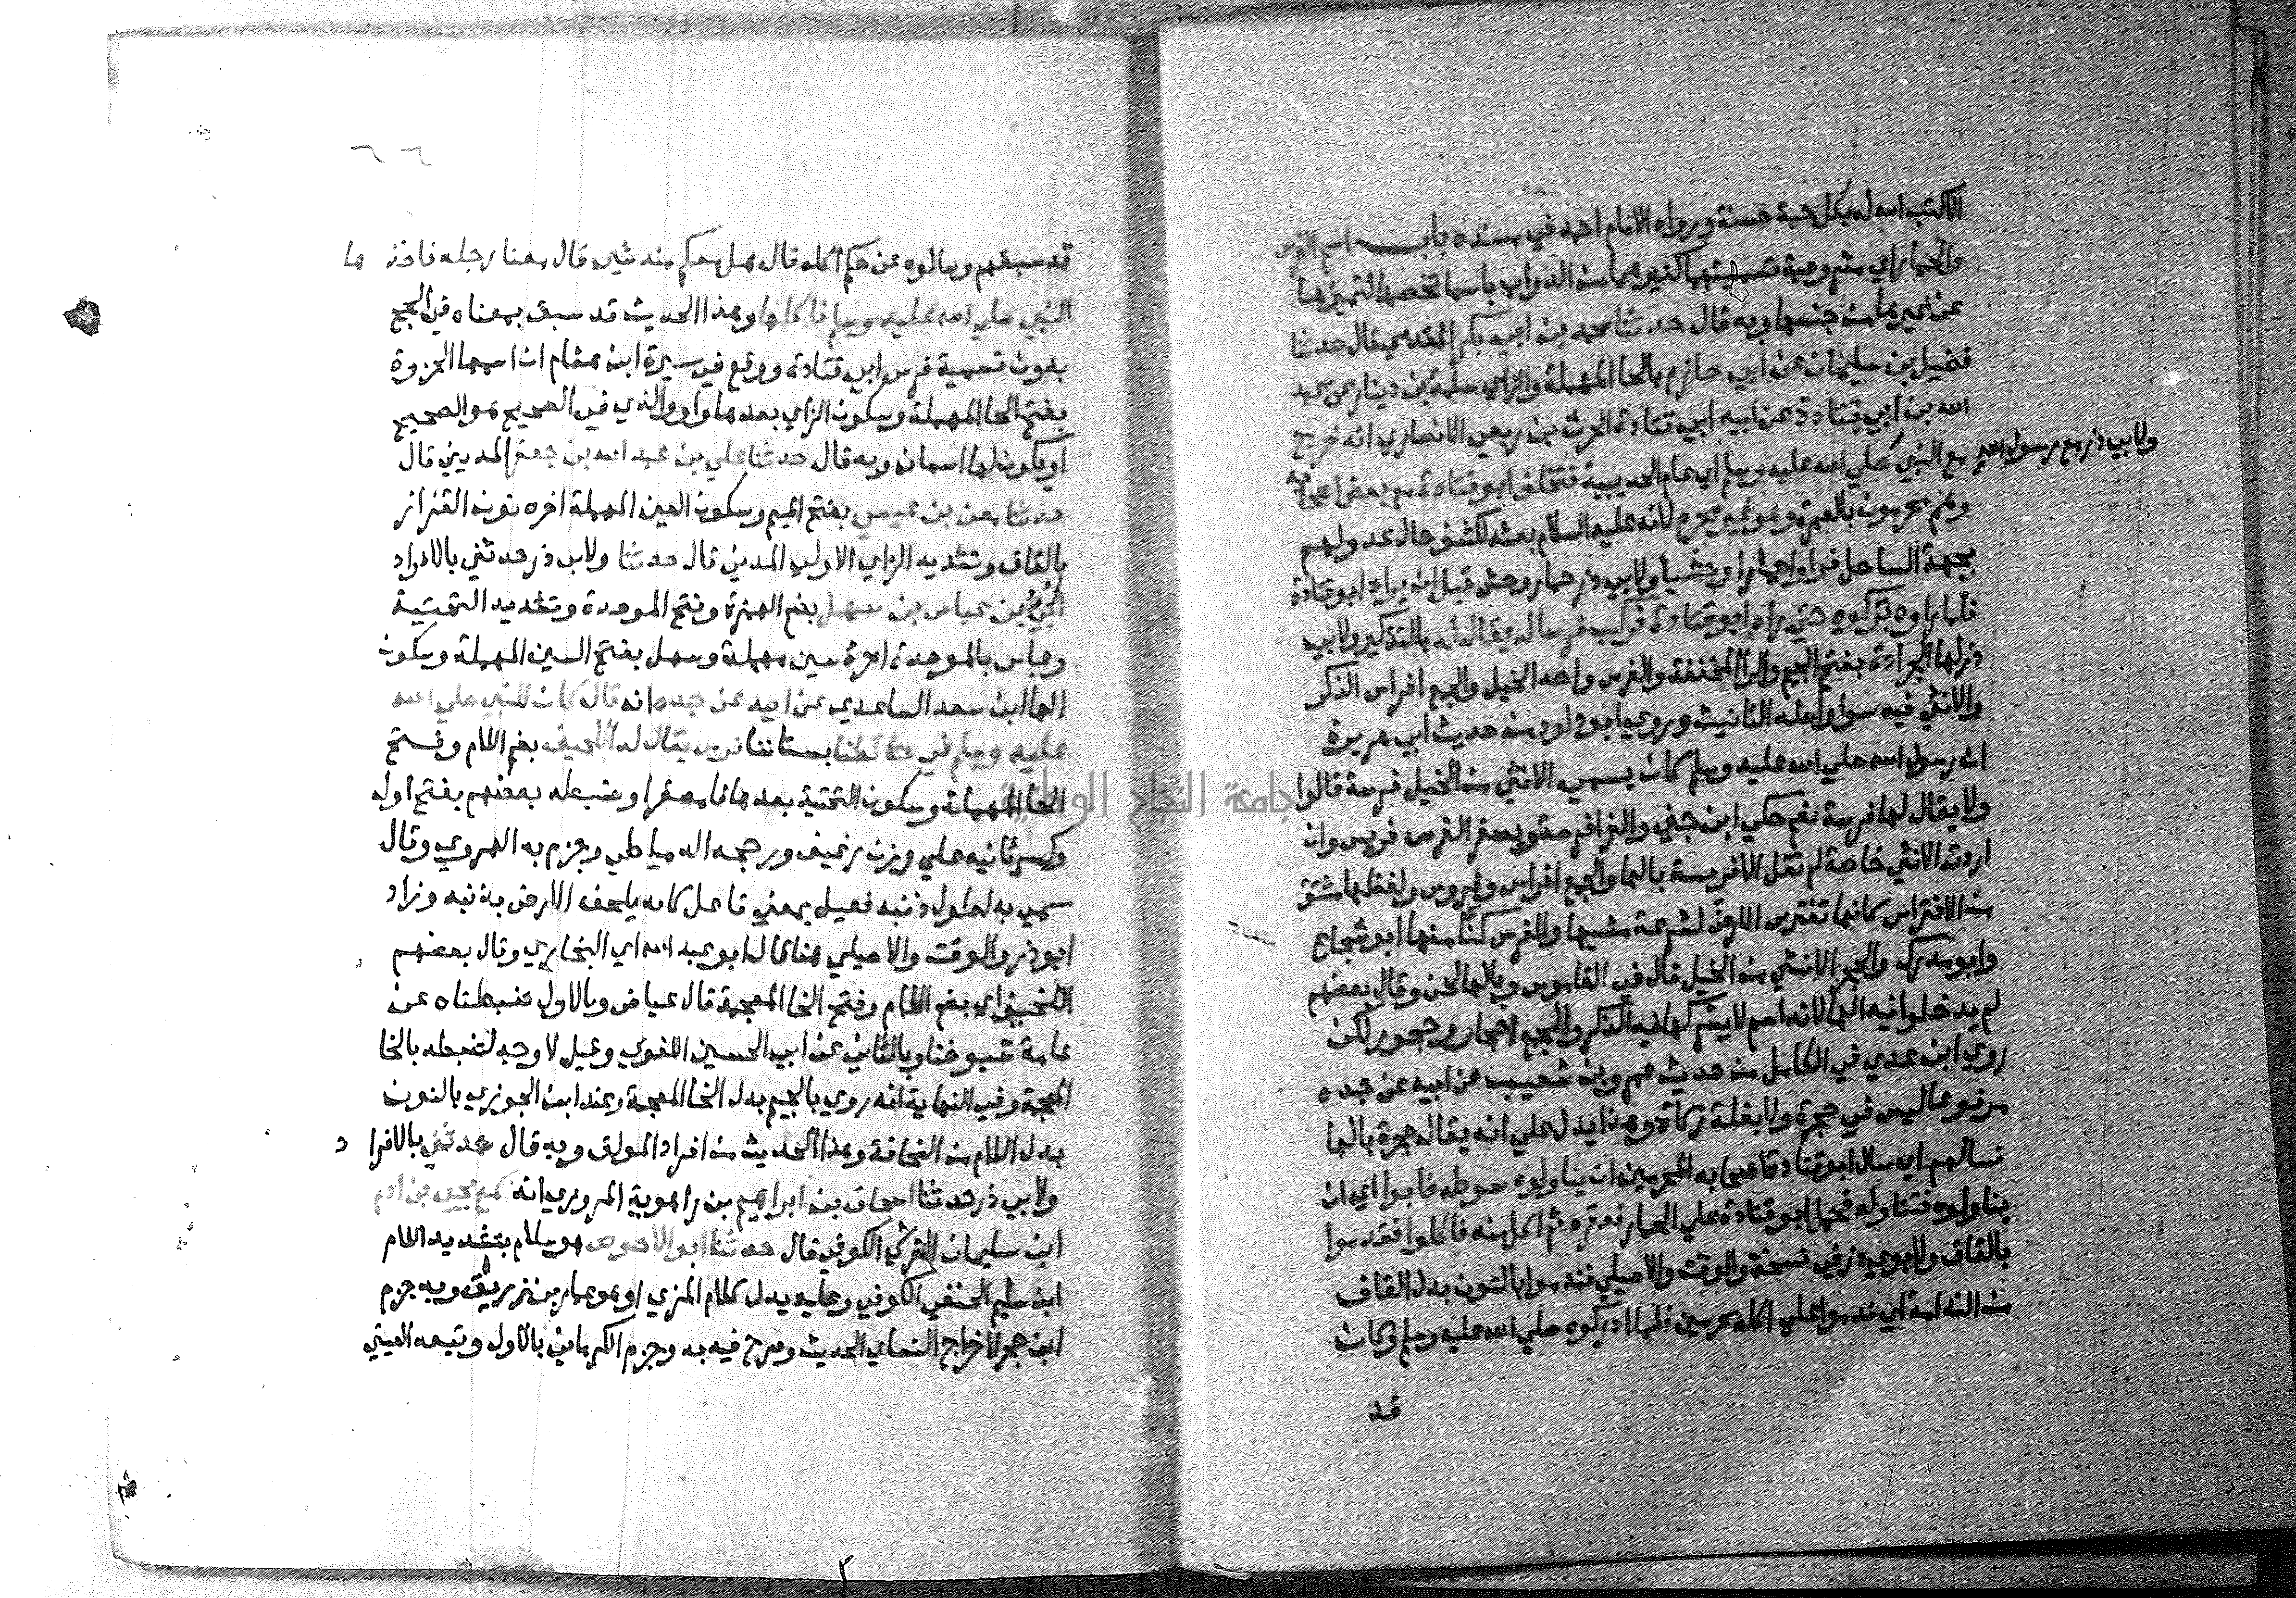 الاكتب الله له بكل حبة حسنة ورواه الامام احمد في مسنده باب اسم الفرس
والحمار اي مشروعية تسميتهما كغيرهما من الدواب باسما تخصها لتميزها
عن غيرها من جنسها وبه قال حدثنا محمد بن ابي بكر المقدمي قال حدثنا
فضيل بن سليمان عن ابي حازم بالحا المهملة والزاي سلمة بن دينار عن عبد
الله بن ابي قتادة عن ابيه ابي قتادة الحرث بن ربعي الانصاري انه خرج
مع النبي صلي الله عليه وسلم اي عام الحديبية فتخلف ابو قتادة مع بعض اصحابه
ولابي ذر مع رسول الله
وهم محرمون بالعمرة وهو غير محرم لانه عليه السلام بعثه لكشف حال عدو لهم
بجهة الساحل فراوا حمارا وحشيا ولابي ذر حمار وحش قبل ان يراه ابو قتادة
فلما راوه تركوه حتي راه ابو قتادة فركب فرسا له يقال له بالتذكير ولابي
ذر لها الجرادة بفتح الجيم والرا المخففة والفرس واحد الخيل والجمع افراس الذكر
والانثي فيه سوا واصله التانيث وروي ابو داود من حديث ابي هريرة
ان رسول الله صلي الله عليه وسلم كان يسمي الانثي من الخيل فرسة قالوا
ولا يقال لها فرسة نعم حكي ابن جني والفرا فرسة ويصغر الفرس فريس وان
اردت الانثي خاصة لم تقل الا فريسة بالها والجمع افراس وفروس ولفظها مشتق
من الافتراس كانها تفترس الارض لسرعة مشيها وللفرس كنا منها ابو شجاع
وابو مدرك والحجر الانثي من الخيل قال في القاموس وبالها لحن وقال بعضهم
لم يدخلوا فيه الها لانه اسم لا يشركها فيه الذكر والجمع احجار وحجور لكن
روي ابن عدي في الكامل من حديث عمرو بن شعيب عن ابيه عن جده
مرفوعا ليس في حجرة ولا بغلة زكاة وهذا يدل علي انه يقال حجرة بالها
فسالهم اي سال ابو قتادة اصحابه المحرمين ان يناولوه سوطه فابوا اي ان
يناولوه فتناوله فحمل ابو قتادة علي الحمار فعقره ثم اكل منه فاكلوا فقدموا
بالقاف ولابوي ذر في نسخة والوقت والاصيلي فندموا بالنون بدل القاف
من الندامة اي ندموا علي اكله محرمين فلما ادركوه صلي الله عليه وسلم وكان
قد
٦٦
قد سبقهم وسالوه عن حكم اكله قال هل معكم منه شي قال معنا رجله فاخذها
النبي صلي الله عليه وسلم فاكلها وهذا الحديث قد سبق بمعناه في الحج
بدون تسمية فرس ابي قتادة ووقع في سيرة ابن هشام ان اسمها الحزوة
بفتح الحا المهملة وسكون الزاي بعدها واو والذي في الصحيح هو الصحيح
او يكون لها اسمان وبه قال حدثنا علي بن عبد الله بن جعفر المديني قال
حدثنا معن بن عيسي بفتح الميم وسكون العين المهملة اخره نون القزاز
بالقاف وتشديد الزاي الاولي المدني قال حدثنا ولابي ذر حدثني بالافراد
ابي بن عباس بن سهل بضم الهمزة وفتح الموحدة وتشديد التحتية
وعباس بالموحدة اخره سين مهملة وسهل بفتح السين المهملة وسكون
الها ابن سعد الساعدي عن ابيه عن جده انه قال كان للنبي صلي الله
عليه وسلم في حائطنا بستاننا فرس يقال له اللحيف بضم اللام وفتح
الحا المهملة وسكون التحتية بعدها فا مصغرا وضبطه بعضهم بفتح اوله
وكسر ثانيه علي وزن رغيف ورجحه الدمياطي وجزم به الهروي وقال
سمي به لطول ذنبه فعيل بمعني فاعل كانه يلحف الارض بذنبه وزاد
ابو ذر والوقت والاصيلي هنا قال ابو عبد الله اي البخاري وقال بعضهم
اللخيف اي بضم اللام وفتح الخا المعجمة قال عياض وبالاول ضبطناه عن
عامة شيوخنا وبالثاني عن ابي الحسين اللغوي وقيل لا وجه لضبطه بالخا
المعجمة وفي النهاية انه روي بالجيم بدل الخا المعجمة وعند ابن الجوزي بالنون
بدل اللام من النحافة وهذا الحديث من افراد المولف وبه قال حدثني بالافراد
ولابي ذر حدثنا اسحاق بن ابراهيم بن راهوية المروزي انه سمع يحيي بن ادم
ابن سليمان القرشي الكوفي قال حدثنا ابو الاحوص هو سلام بتشديد اللام
ابن سليم الحنفي الكوفي وعليه يدل كلام المزي او هو عمار بن زريق وبه جزم
ابن حجر لاخراج النساي الحديث وصرح فيه به وجزم الكرماني بالاول وتبعه العيني